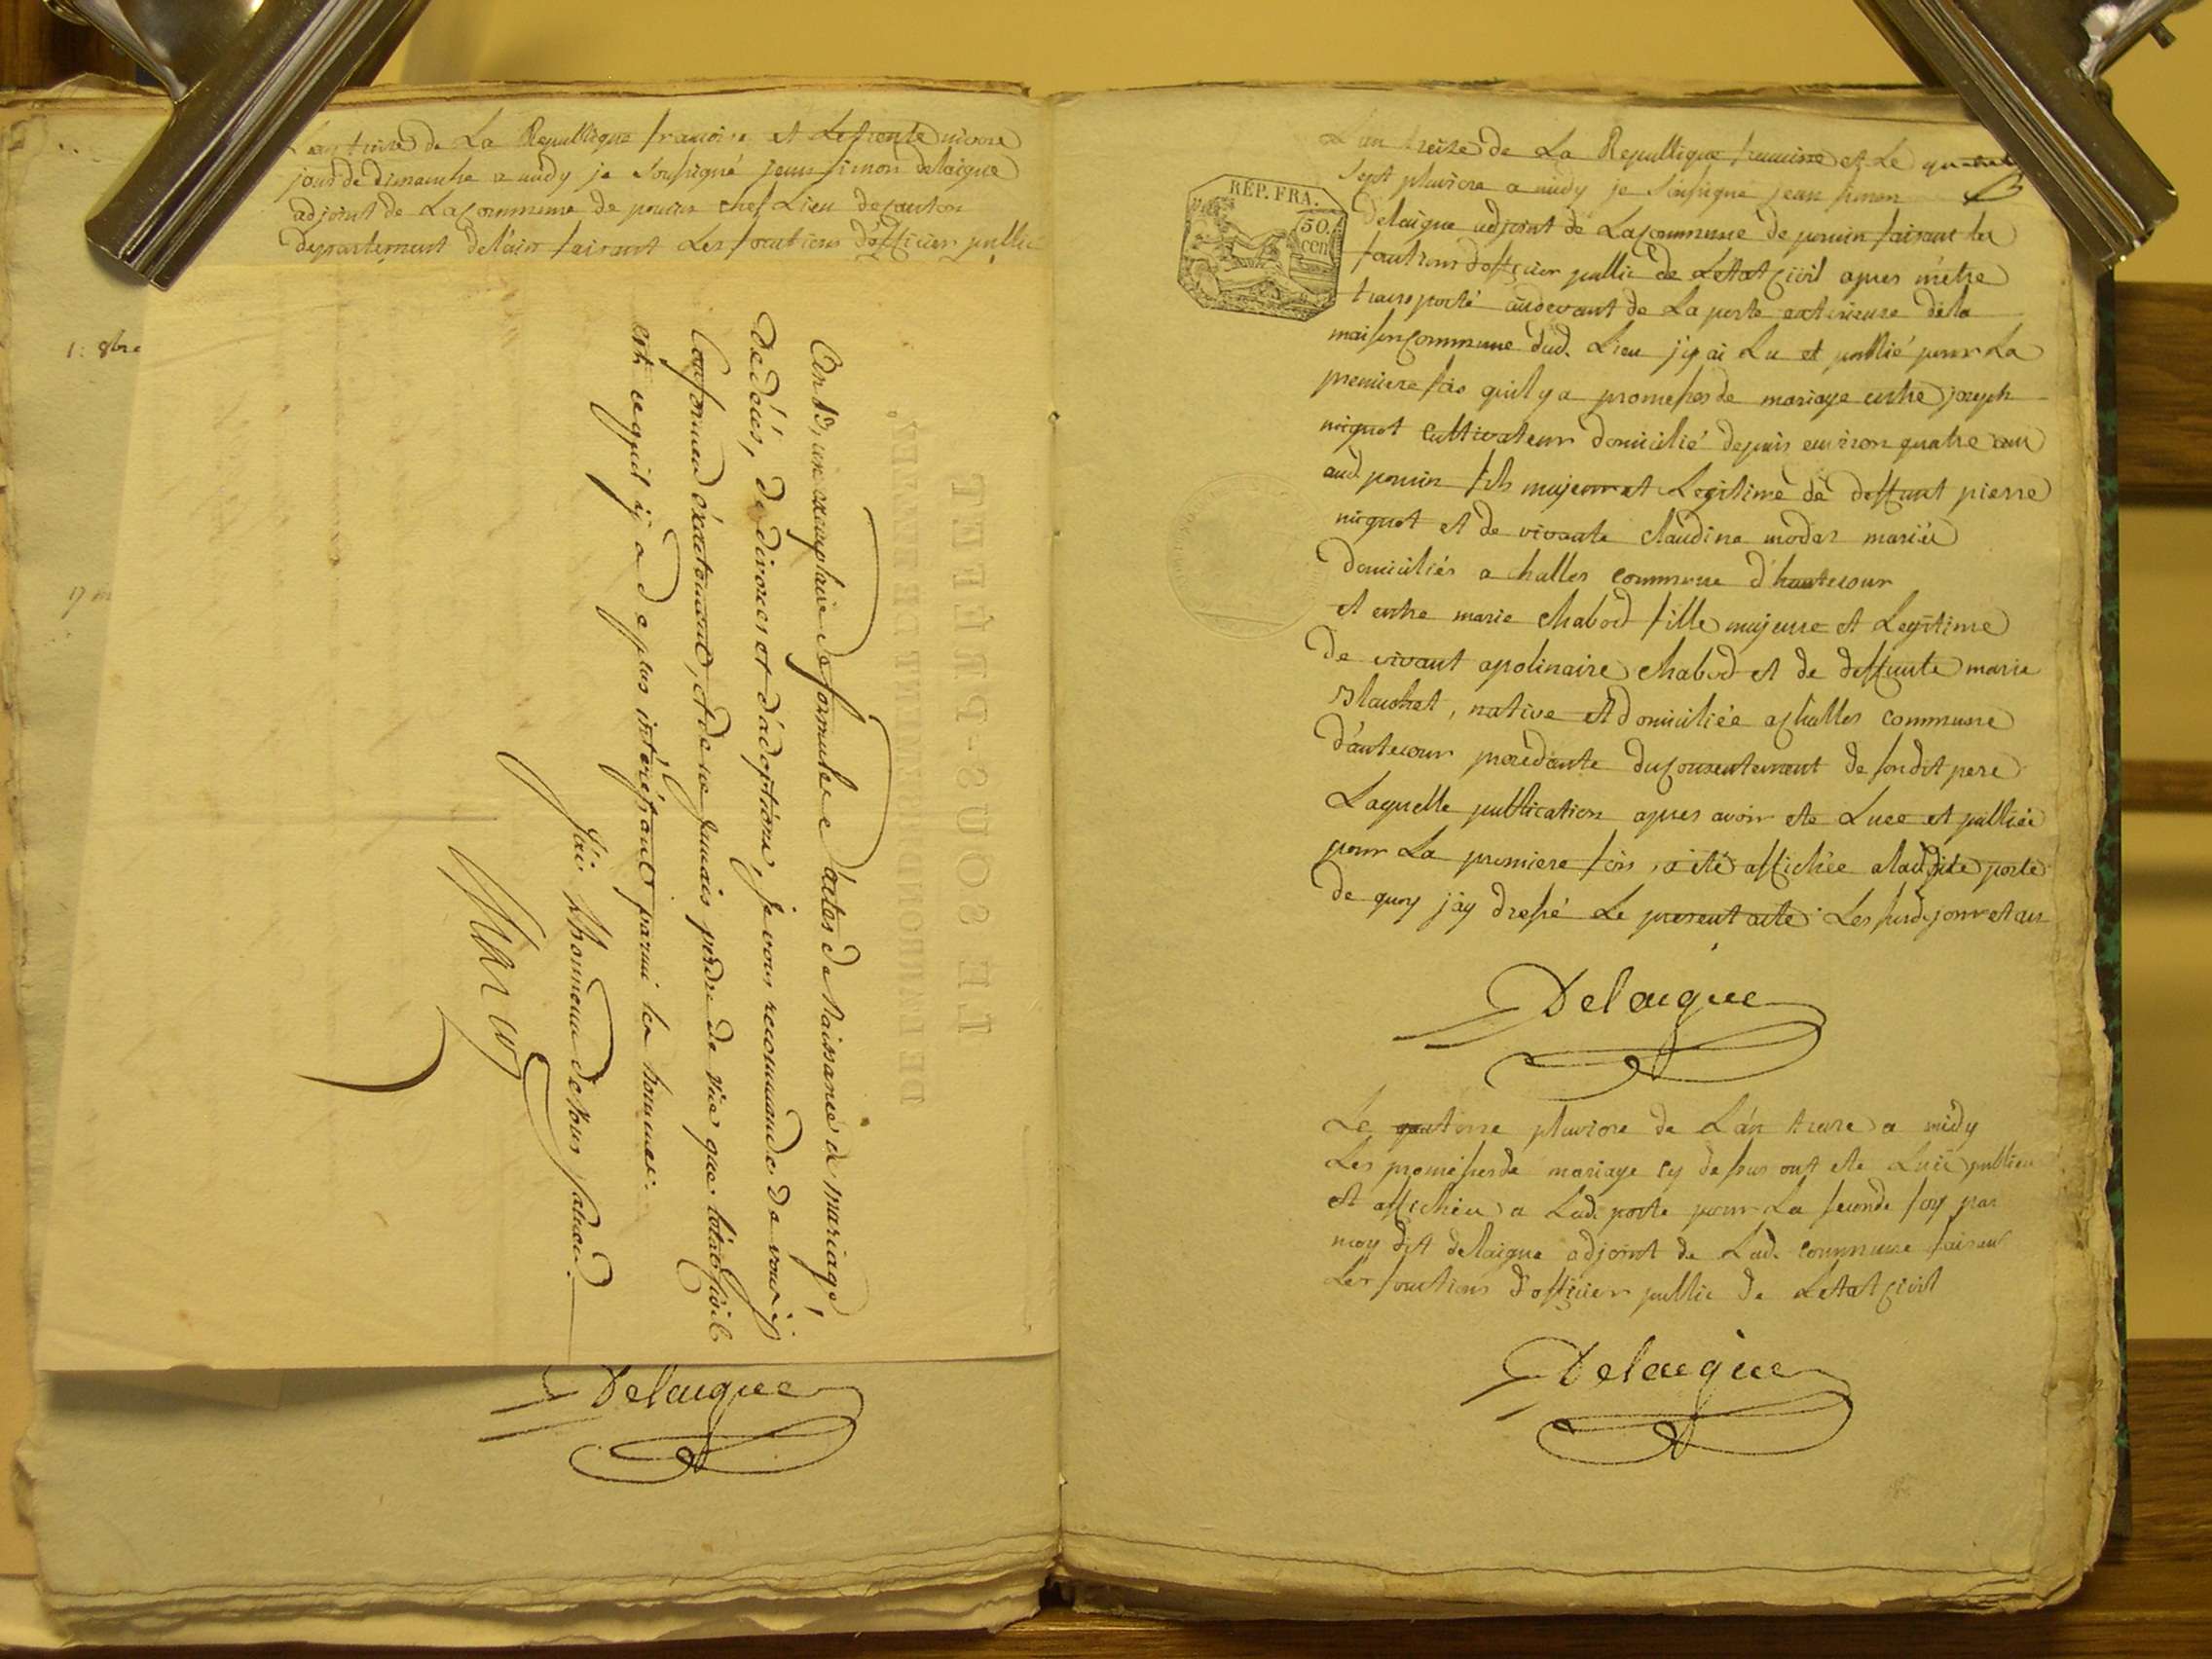 L'an treize de La Republique francoise et Le trente nivose
jour de dimanche a midy je soussigné jean simon delaigue
adjoint de La Commune de poncin chef Lieu de canton
departement de l'ain faisant Les fonctions d'officier public
1: 8bre
An 13, un exemplaire de formules d'actes de Naissance, de mariage,
de décès, de divorces et d'adoptions, je vous recommande de vous y
Conformer éxactement, et de ne jamais perdre de vüe que l'état Civil
est ce qu'il y a de plus intéressant parmi les hommes.
J'ai l'honneur de vous saluer.
LE SOUS-PRÉFET
DE L'ARRONDISSEMENT DE
Delaigue
REP. FRA.
50.
cen
L'an treize de La Republique francoise et Le
Sept pluviose a midy je soussigné jean simon
Delaigue adjoint de La Commune de poncin faisant les
fonctions d'officier public de L'etat Civil apres m'etre
transporté audevant de La porte exterieure de la
maison Commune dud. Lieu j'y ai Lu et publié pour La
premiere fois qu'il y a promesses de mariage entre joseph
niogret cultivateur domicilié depuis environ quatre ans
aud. poncin fils majeur et Legitime de deffunt pierre
niogret et de vivante claudine modas mariés
Domiciliés a challes commune d'hautecour
et entre marie chabod fille majeure et Legitime
De vivant apolinaire chabod et de deffunte marie
Blanchet, native et domiciliée a challes commune
d'autecour procedante du Consentement de son dit pere
Laquelle publication apres avoir ete Luee et publiée
pour La premiere fois, a été affichée a la ditte porte
de quoy j'ay dressé Le present acte Les susd. jour et an
Delaigue
Le quatorze pluviose de L'an treize a midy
Les promesses de mariage cy dessus ont ete Luës publiées
et affichées a Lad. porte pour La seconde foy par
moy dit delaigue adjoint de Lad. commune faisant
Les fonctions d'officier public de L'etat Civil
Delaigue